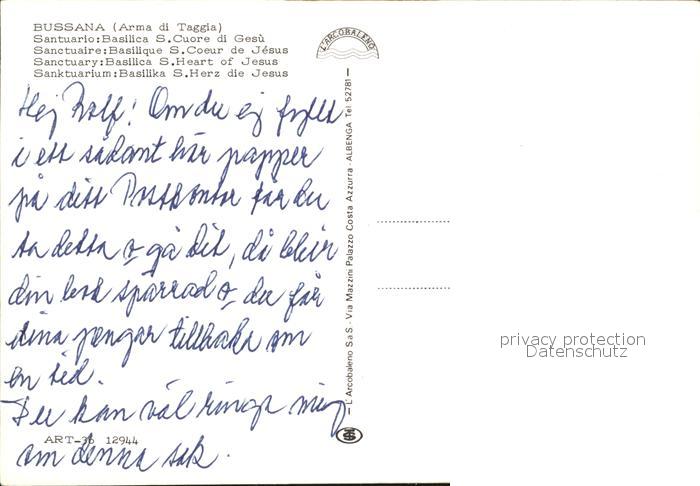 BUSSANA (Arma di Taggia)
Santuario:Basilica S.Cuore di Gesù
Sanctuaire:Basilique S.Coeur de Jésus
Sanctuary:Basilica S.Heart of Jesus
Sanktuarium:Basilika S.Herz die Jesus
L'ARCOBALENO
Hej Rolf! Om du ej fyllt
i ett sådant här papper
på ditt Postkontor får du
ta detta o gå dit, då blir
din bok spärrad o du får
dina pengar tillbaka om
en tid.
Du kan väl ringa mig
om denna sak.
ART-36 12944
L'Arcobaleno S.a.S. - Via Mazzini Palazzo Costa Azzurra - ALBENGA Tel 52781
privacy protection
Datenschutz